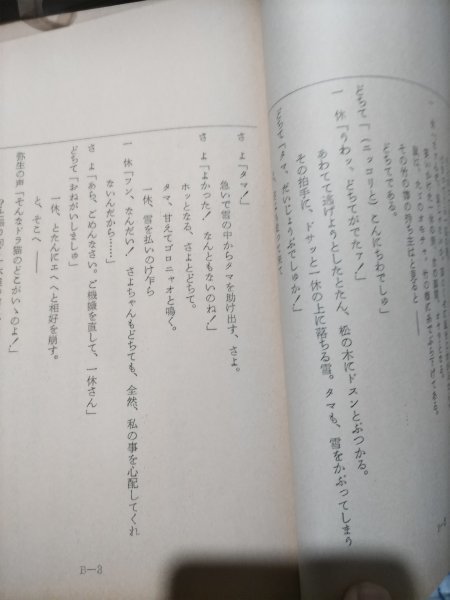 その竹の雪の持ち主はと見ると――
どちてである。
どちて「(ニッコリと) こんにちわでしゅ」
一休「うわッ、どちてがでたァ!」
あわてて逃げようとしたとたん、松の木にドスンとぶつかる。
その拍手に、ドサッと一休の上に落ちる雪。タマも、雪をかぶってしまう
どちて「タマ、だいじょうぶでしゅか!」
さよ「タマ!」
急いで雪の中からタマを助け出す、さよ。
さよ「よかった! なんともないのね!」
ホッとなる、さよとどちて。
タマ、甘えてゴロニャオと鳴く。
一休、雪を払いのけ乍ら
一休「フン、なんだい! さよちゃんもどちても、全然、私の事を心配してくれ
ないんだから……」
さよ「あら、ごめんなさい。ご機嫌を直して、一休さん」
どちて「おねがいしましゅ」
一休、とたんにエヘヘと相好を崩す。
と、そこへ――
弥生の声「そんなドラ猫のどこがいゝのよ!」
B―3